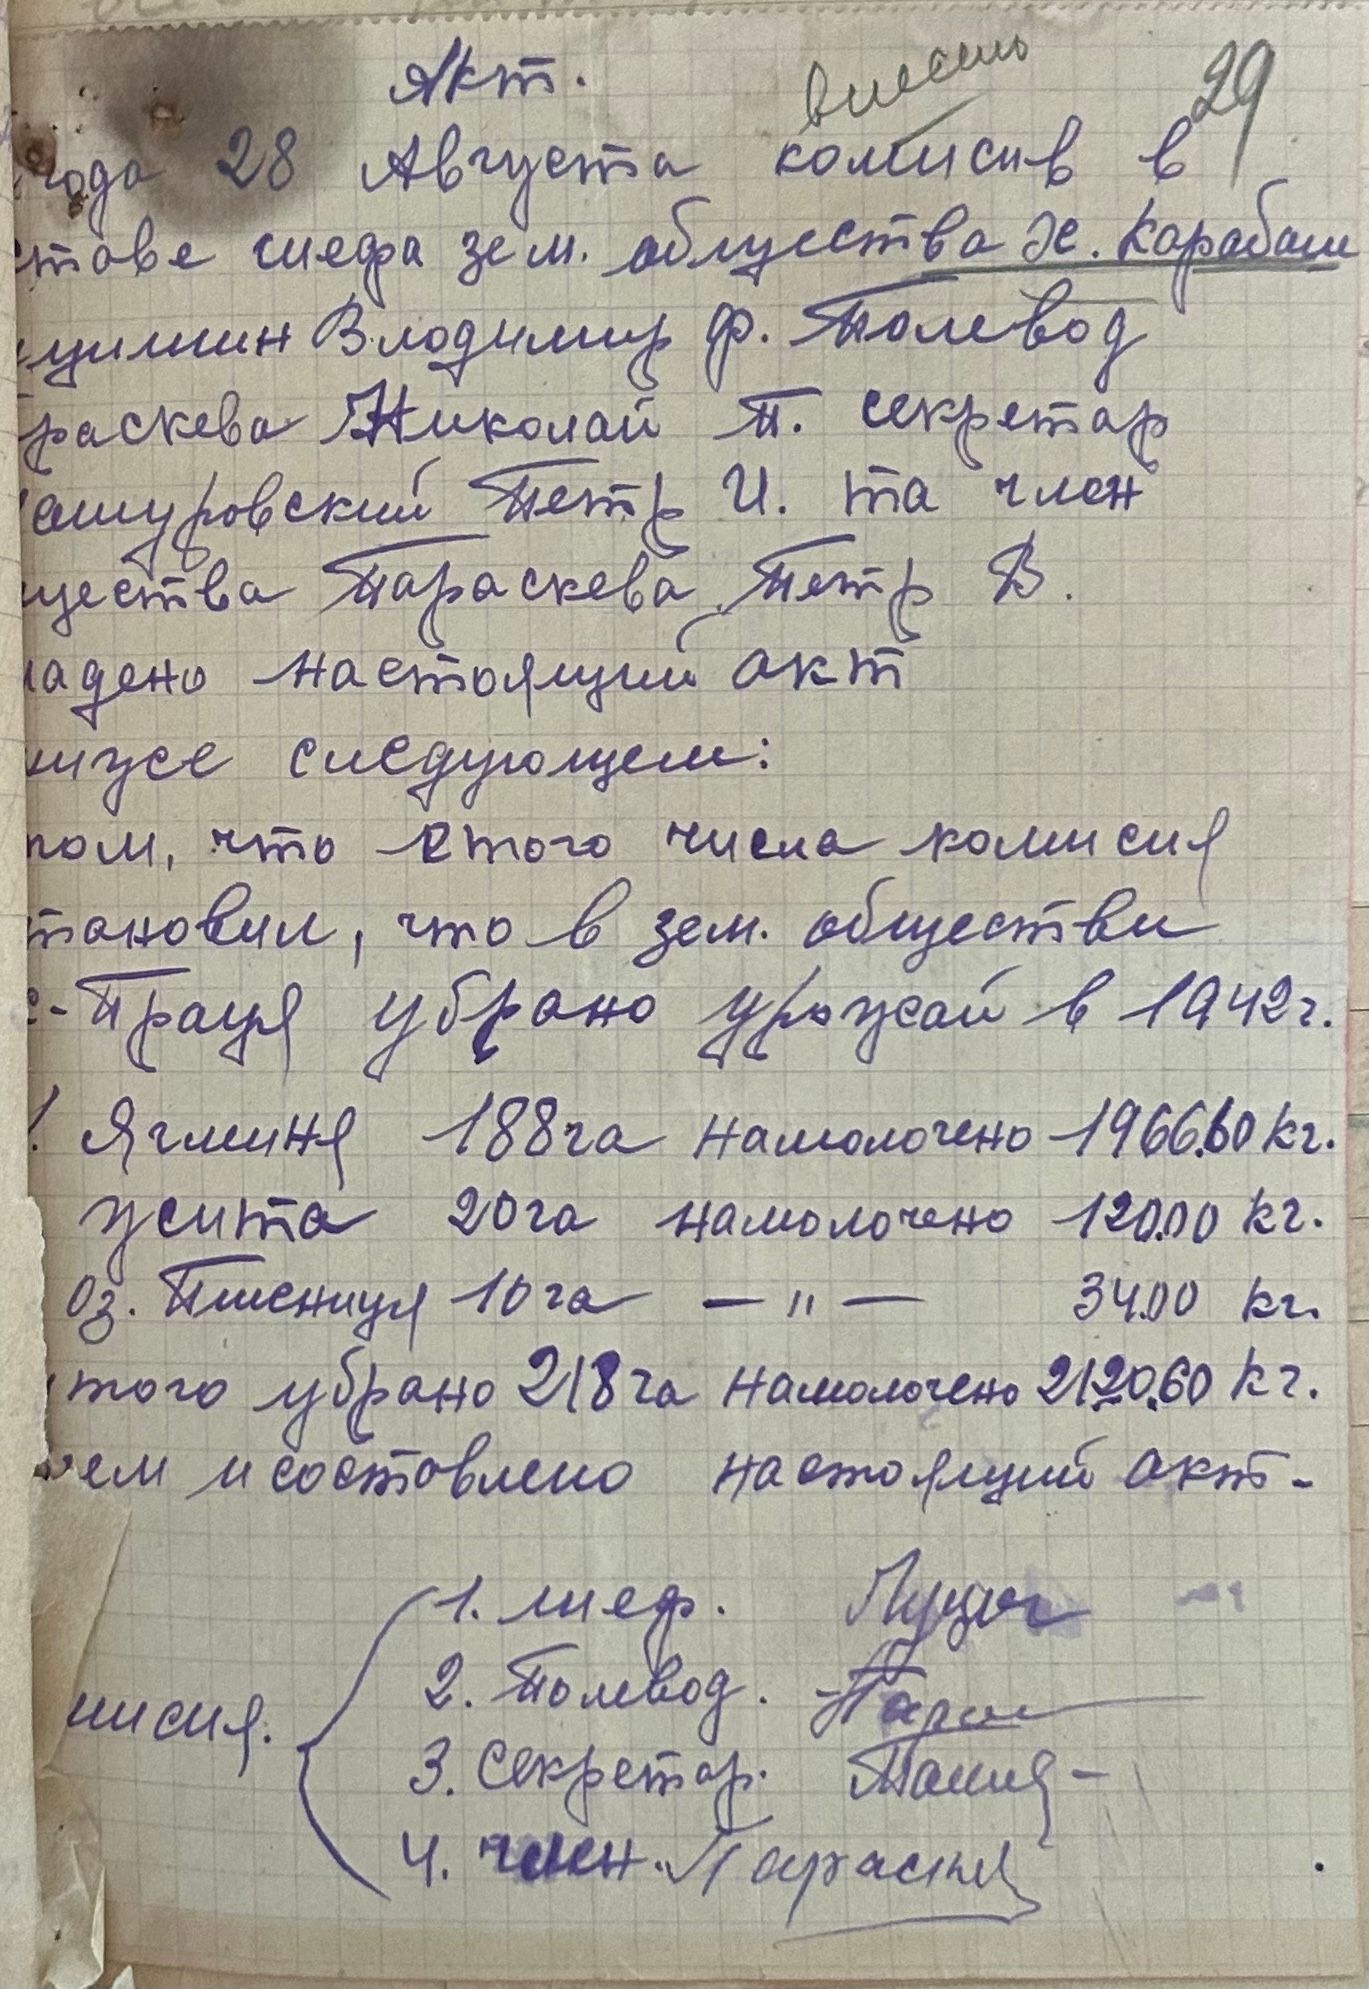 Акт.
внесено 29
года 28 Августа комисив в
ставе шефа зем. общества х. Карабаш
Владимир Ф. Полевод
раскева Николай П. секретар
ашуровский Петр И. та член
щества Параскева Петр В.
ладено настоящий акт
нижсе следующем:
том, что етого числа комисия
тановил, что в зем. обществи
Праця убрано урожай в 1942г.
Ячминя 188га намолочено 1966.60 кг.
жита 20га намолочено 120.00 кг.
Оз. Пшениця 10га — " — 34.00 кг.
того убрано 218га намолочено 2120.60 кг.
чем и соствлено настоящий акт-
1. шеф.
2. Полевод. Пара
мисия.
3. секретар.
4. член. Параскев